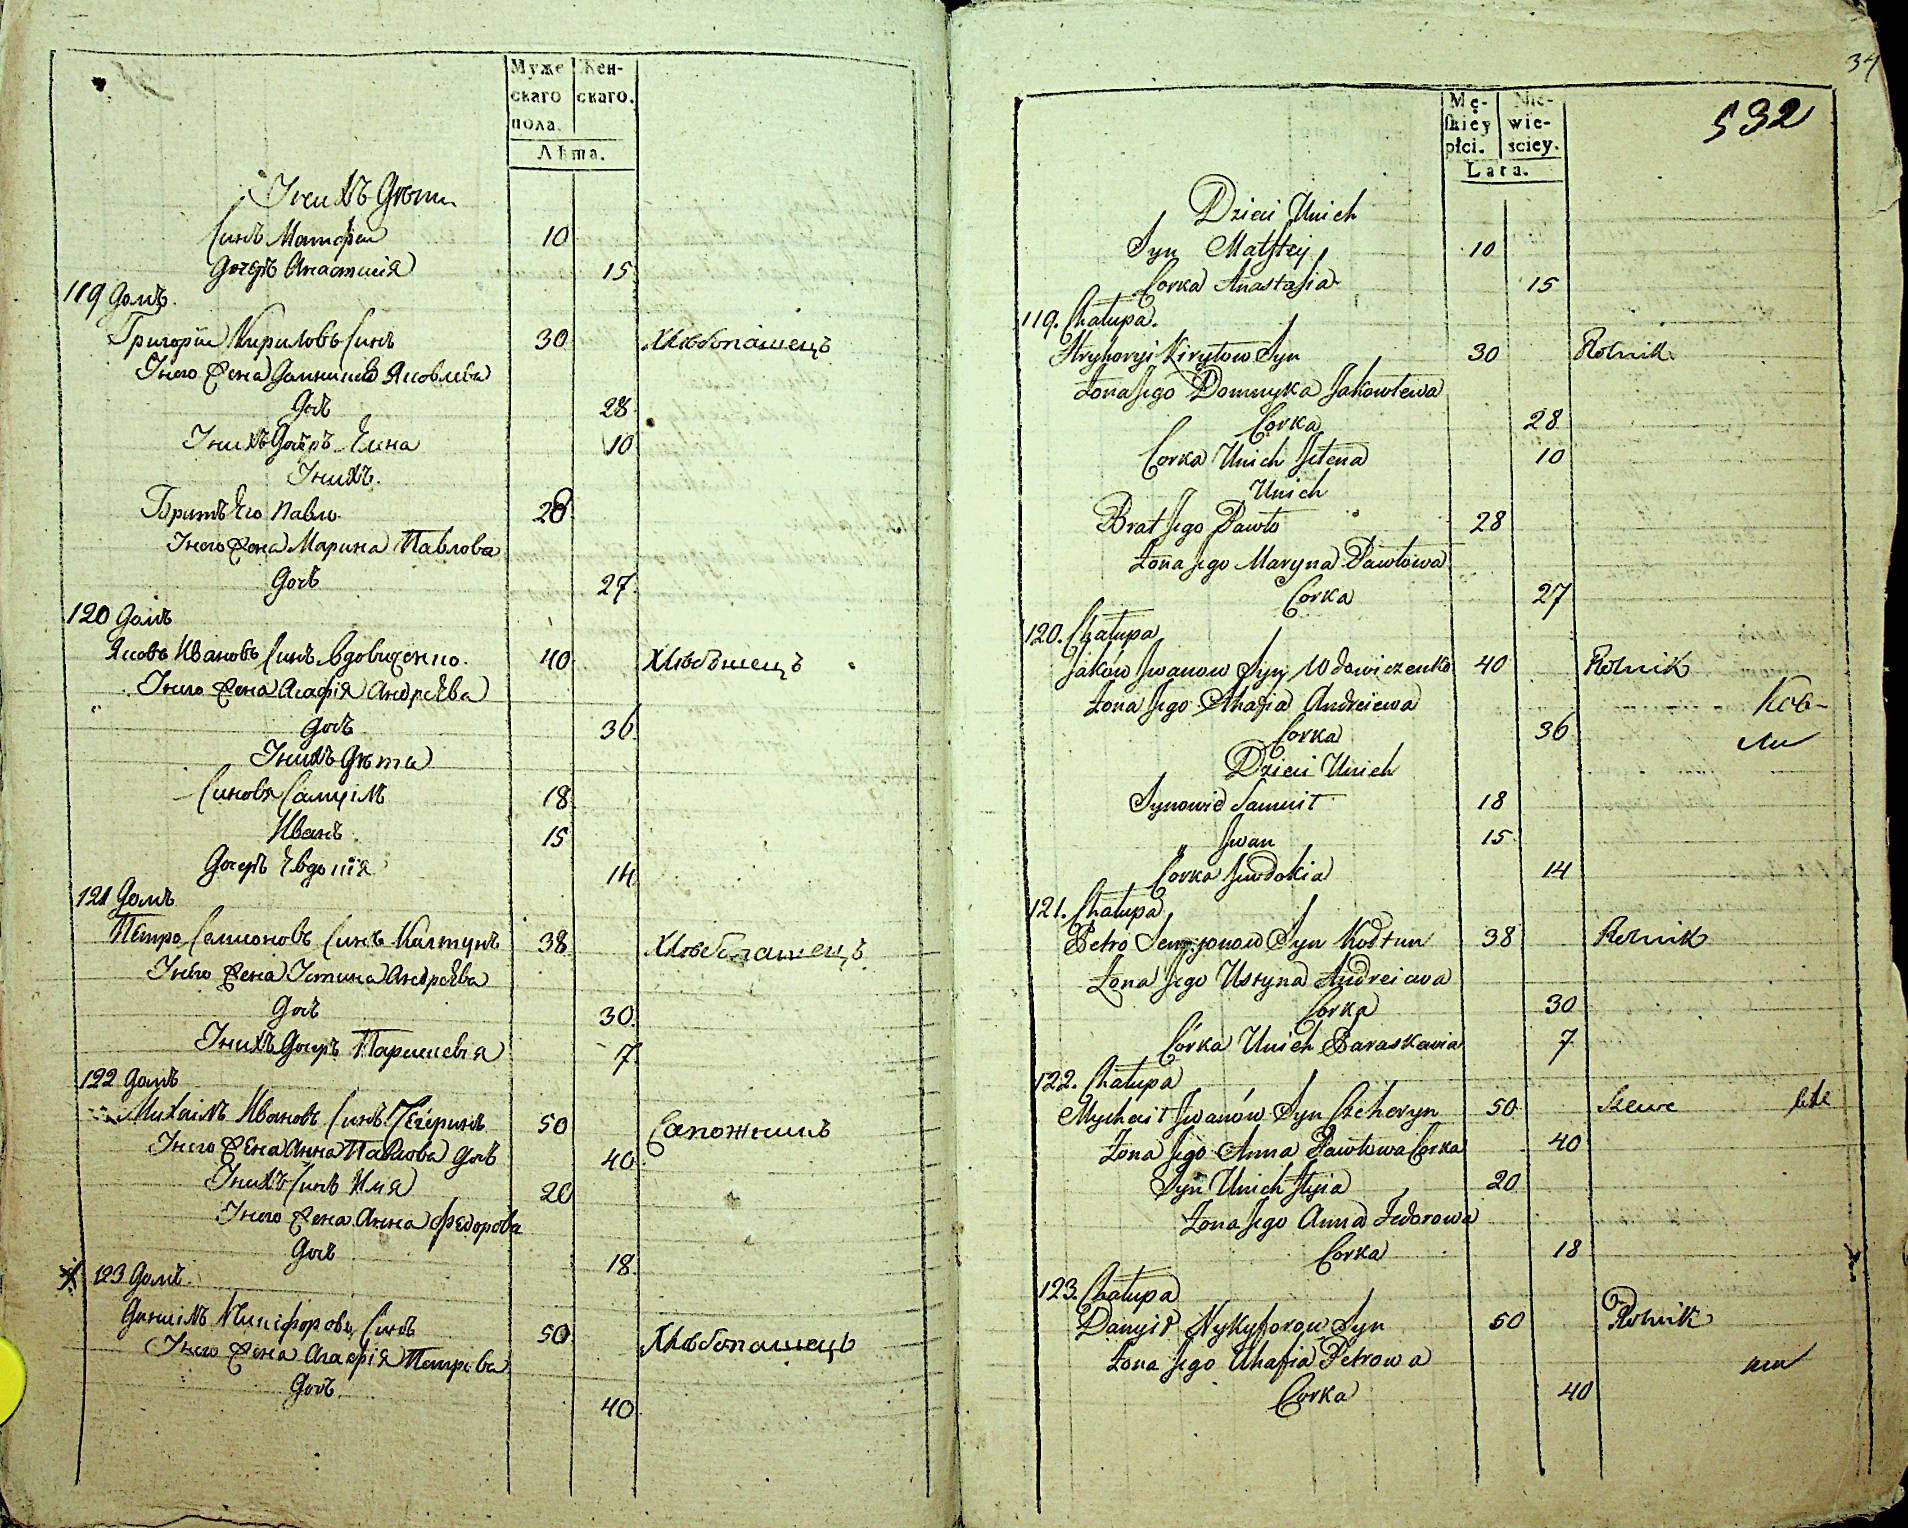 Муже
скаго
пола.
Жен-
скаго.
Лѣта.
У нихъ Дѣти
Синъ Матфеи 10
Дочеръ Анастасія 15
119 Домъ.
Григоріи Кириловъ Синъ 30 Хлѣбопашецъ
У него Жена Домникія Яковлева
Доч 28
У нихъ Дочеръ Елена 10
У нихъ.
Братъ Его Павло 28
У него Жена Марина Павлова
Доч 27
120 Домъ
Яковъ Ивановъ Синъ Вдовиченко. 40
У него Жена Агафія Андреева
Доч 36
У нихъ Дѣти
Синовя Самуілъ 18
Иванъ 15
Дочеръ Евдокія 14
121 Домъ
Петро Самионовъ Синъ Калтунъ 38 Хлѣбопашецъ
У него Жена Устина Андреева
Доч 30.
У нихъ Дочеръ Параскевія 7.
122 Домъ
Михаілъ Ивановъ Синъ Чегеринъ 50 Сапожникъ
У него Жена Анна Павлова Доч 40
У нихъ Синъ Илія 20
У него Жена Анна Федорова
Доч 18.
123 Домъ.
Даніилъ Никифоровъ Синъ 50 Хлѣбопашецъ
У него Жена Агафія Петрова
Доч. 40
34
532
Mę-
skiey
płci.
Nie-
wie-
sciey.
Lata.
Dzieci Unich
Syn Matftej 10
Corka Anastasia 15
119. Chałupa.
Hryhoryi Kiryłow Syn 30 Rolnik
Żona Jego Domnyka Jakowlewa
Corka 28
Corka Unich Jełena 10
Unich
Brat Jego Pawło 28
Żona Jego Maryna Pawłowa
Corka 27
120. Chałupa
Jaków Jwanow Syn Wdowiczenko 40 Rolnik
Żona Jego Ahafia Andreiewa
Corka 36
Dzieci Unich
Synowie Samuił 18
Jwan 15
Corka Jewdokia 14
121. Chałupa
Petro Semyonow Syn Kołtun 38 Rolnik
Żona Jego Ustyna Andreiawa
Corka 30
Córka Unich Paraskawia 7
122. Chałupa
Mychaił Jwanów Syn Czeheryn 50 Szewc
Żona Jego Anna Pawłowa Corka 40
Syn Unich Jlyia 20
Żona Jego Anna Fedorowa
Corka 18
123. Chałupa
Danyił Nykyforow Syn 50 Rolnik
Żona Jego Uhafia Petrowa
Corka 40